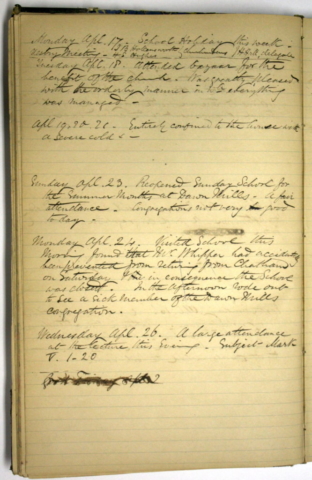 Monday Apl. 17. School Holiday this week
Vestry Meeting
Tuesday Apl. 18. Attended bazaar for the
benefit of the church. Was greatly pleased
with the orderly manner in wh everything
was managed.
Apl 19. 20. 21. Entirely confined to the house with
a severe cold
Sunday Apl. 23. Reopened Sunday School for
the Summer Months at Dawn Mills. A fair
attendance. Congregations not very good
to day.
Monday Apl. 24. Visited School this
Morning found that Mr Whipper had accidentally
been prevented from returning from Chatham
on Saturday & in consequence the School
was closed. In the afternoon rode out
to see a sick member of the Dawn Mills
congregation.
Wednesday Apl. 26. A large attendance
at the lecture this evening. Subject Mark
V. 1-20